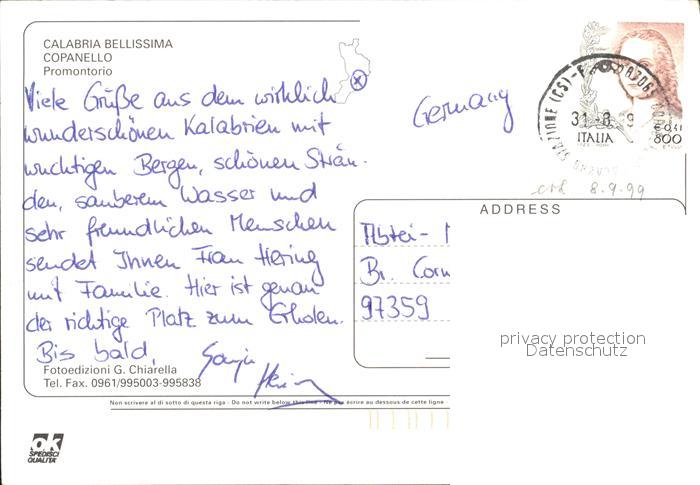 CALABRIA BELLISSIMA
COPANELLO
Promontorio
Viele Grüße aus dem wirklich
wunderschönen Kalabrien mit
wuchtigen Bergen, schönen Strän-
den, sauberem Wasser und
sehr freundlichen Menschen
sendet Ihnen Frau Hering
mit Familie. Hier ist genau
der richtige Platz zum Erholen.
Bis bald,
Fotoedizioni G. Chiarella
Tel. Fax. 0961/995003-995838
Non scrivere al di sotto di questa riga - Do not write below this line - Ne pas écrire au dessous de cette ligne
ok
SPEDISCI
QUALITA'
Germany
31-8
ITALIA
€ 0,41
800
8.9.99
ADDRESS
Abtei-
Br. Corn
97359
privacy protection
Datenschutz